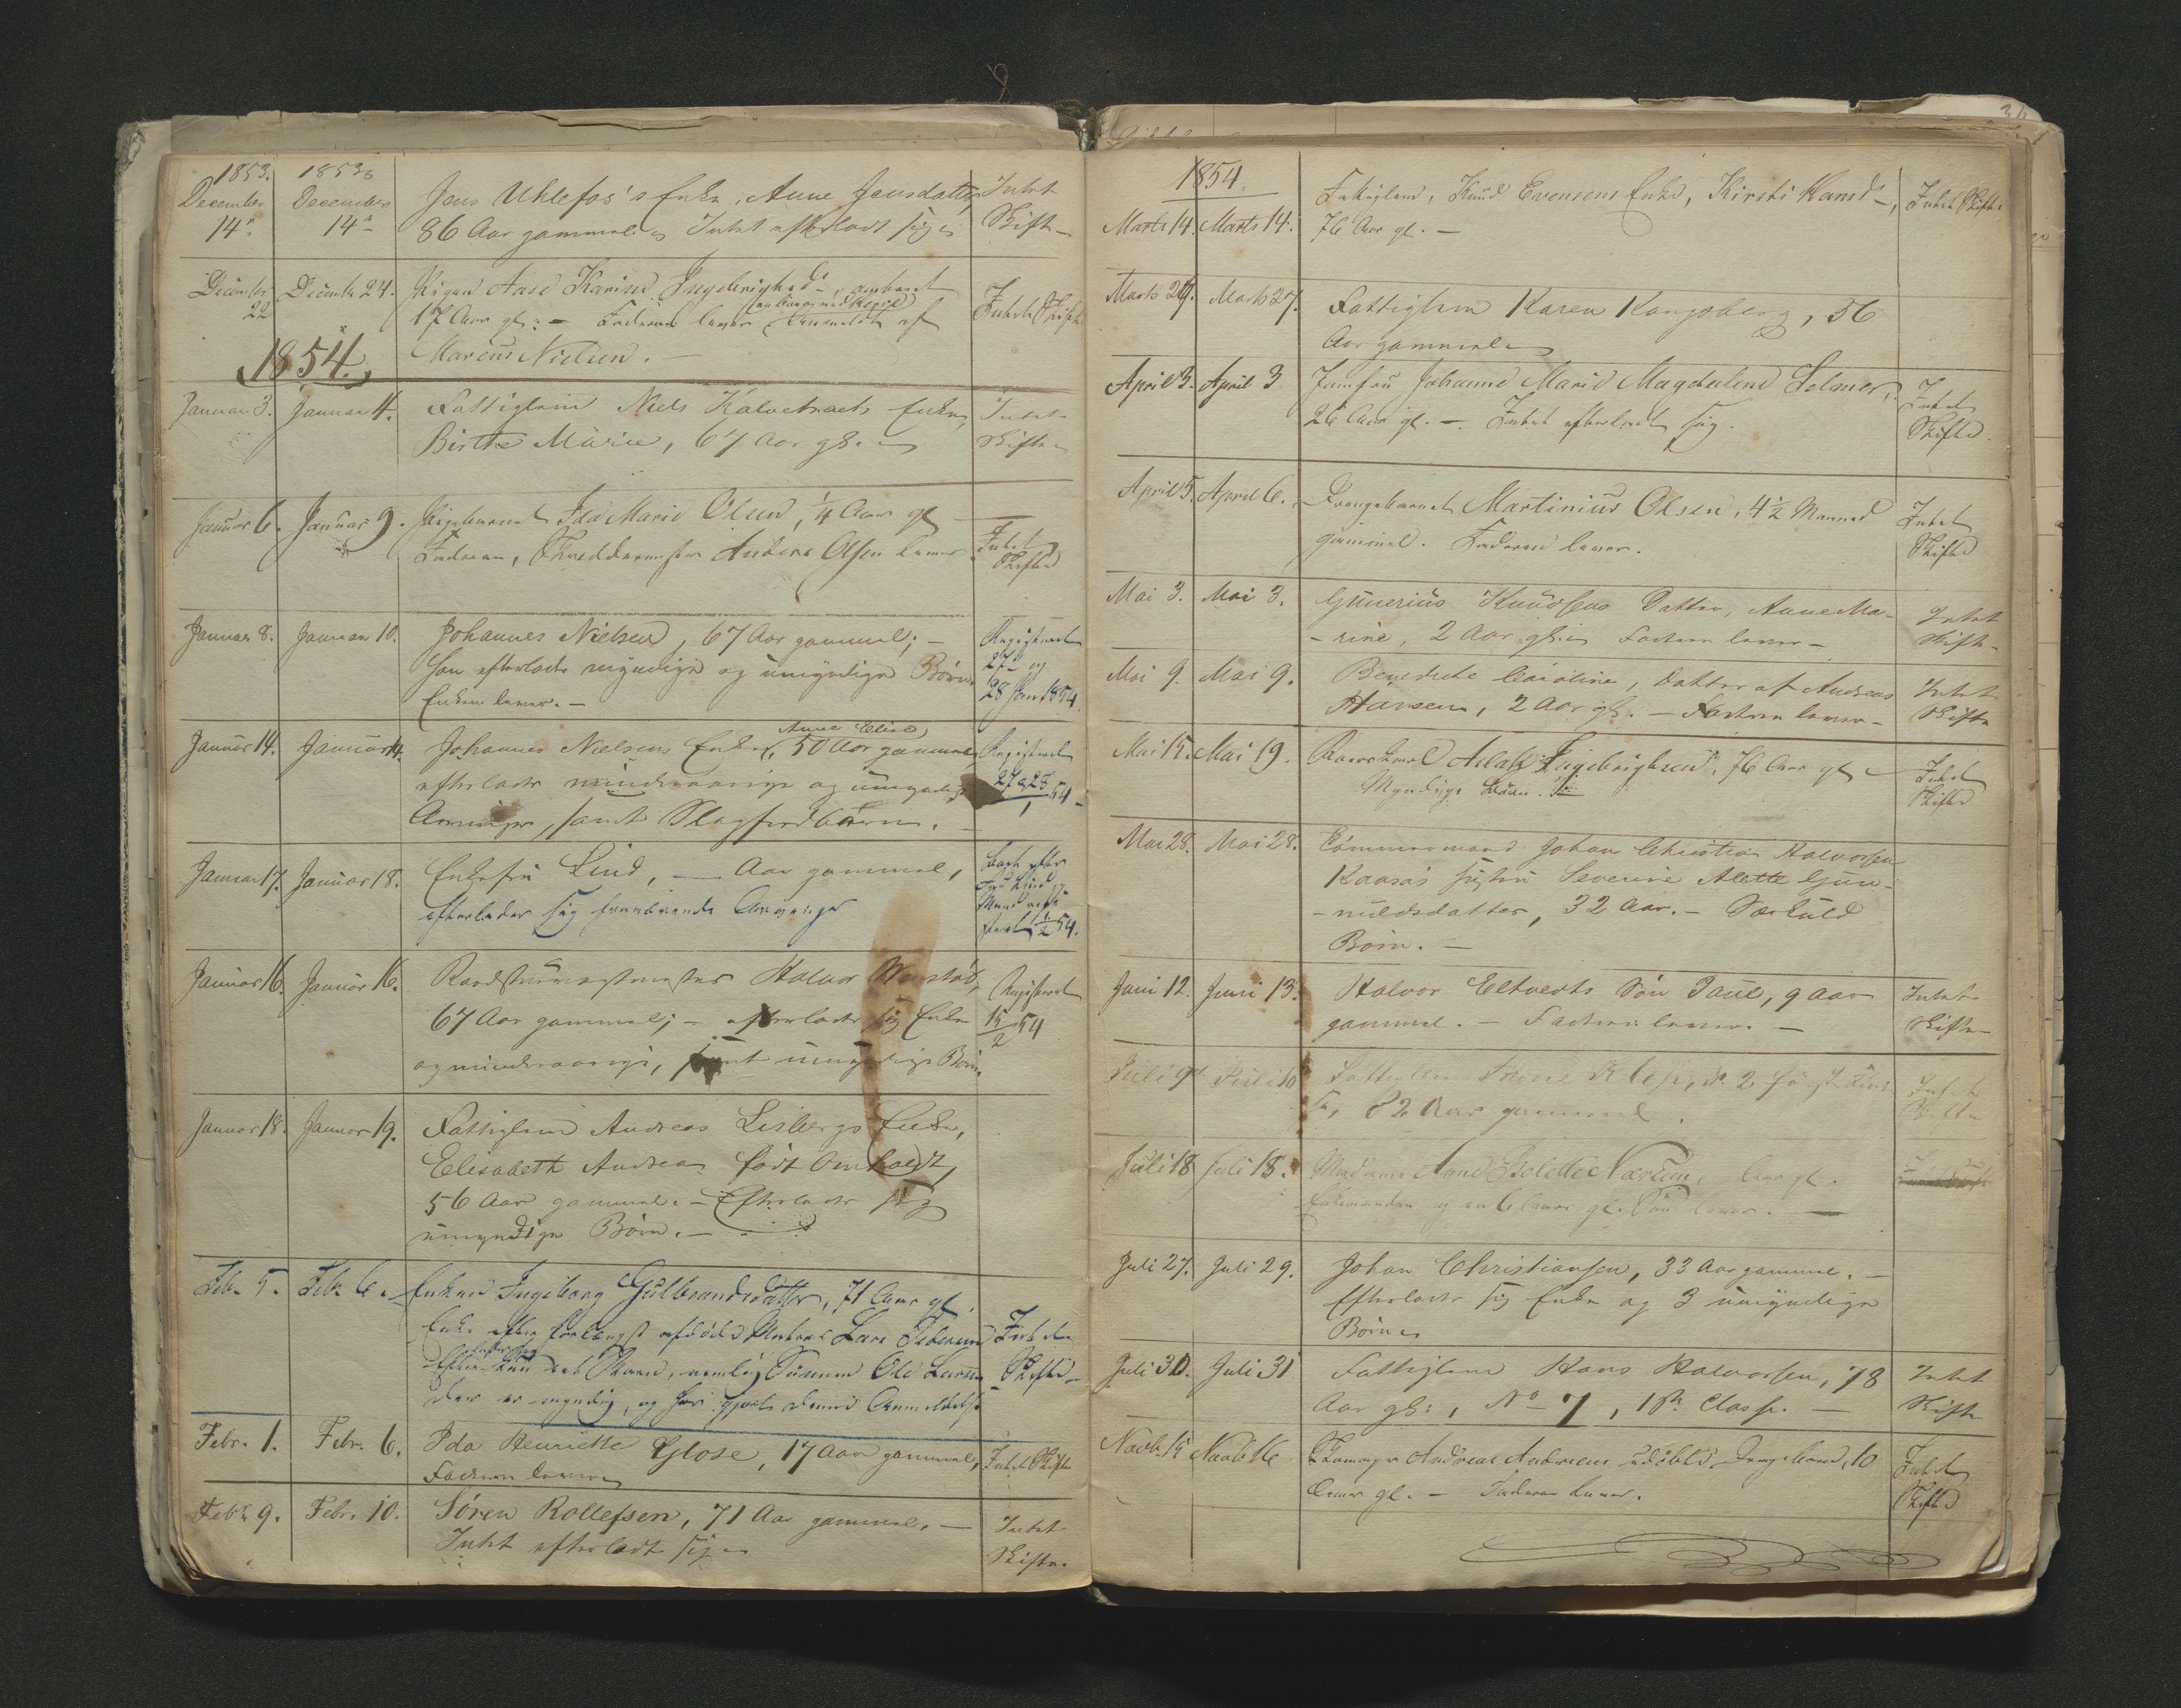 1853. 1853
December December Jens Uhlefos's Enke, Anne Jensdatter, Intet
14de 14de 86 Aar gammel. Intet efterladt sig. Skifte
December December 24. Pigen Aase Karine Ingebrigtsd.,
22 17 Aar gl. – Faderen lever af Intet Skifte
1854. Marcus Nielsen. –
Januar 3. Januar 4. Fattiglem Niels Kalvetraets Enke, Intet
Birthe Marie, 67 Aar gl. Skifte
Januar 6. Januar 9. Pigebarnet Ida Marie Olsen, ¼ Aar gl
Faderen, Anders Olsen lever Intet
Skifte
Januar 8. Januar 10. Johannes Nielsen, 67 Aar gammel; – Registreret
Han efterlader myndige og umyndige Børn. 27 og
Enken lever. – 28 Jan 1854.
Anne Elise
Januar 14. Januar 14. Johannes Nielsens Enke, 50 Aar gammel Registreret
efterlader mindreaarige og umyndige 27 & 28/1 54
Arvinger, samt Slagfredbørn.
Januar 17. Januar 18. Enkefru Lind, — Aar gammel,
efterlader sig fraværende Arvinger
1/2 54.
Januar 16. Januar 16. Halvor
67 Aar gammel; – efterlader sig Enke Registreret
15/2 54
og mindreaarige, samt umyndige Børn.
Januar 18. Januar 19. Fattiglem Andreas Lisbergs Enke,
Elisabeth Andreas født Omholdt,
56 Aar gammel. – Efterlader sig
umyndige Børn. –
Feb. 5. Feb. 6. Enken Ingeborg Gulbrandsdatter, 71 Aar gl.
Enke efter forlængst afdøde Lars Pedersen Intet
Efterlader sig kun et Barn, nemlig Sønnen Ole Larsen Skifte
der er myndig, og har gjort denne Anmeldelse
Febr. 1. Febr. 6. Ida Henriette Glose, 17 Aar gammel, Intet Skifte
Faderen lever
Feb. 9. Febr. 10. Søren Rollefsen, 71 Aar gammel. – Intet
Intet efterladt sig Skifte.
1854.
Fattiglem, Knud Evensens Enke, Kirsti Hansd., Intet Skifte
Marts 14. Marts 14. 76 Aar gl. –
Marts 24. Marts 27. Fattiglem Karen Kongsberg, 56
Aar gammel
April 3. April 3 Jomfru Johanne Marie Magdalene Selmer, Intet
26 Aar gl. – Intet efterladt sig. Skifte
April 5. April 6. Drengebarnet Martinius Olsen, 4½ Maaned Intet
gammel. Faderen lever. Skifte
Mai 3. Mai 3. Gunerius Knudsens Datter, Anne Ma- Intet
-rine, 2 Aar gl. Faderen lever – Skifte
Mai 9. Mai 9. Benedicte Caroline, Datter af Andreas Intet
Hansen, 2 Aar gl. – Faderen lever – Skifte
Mai 15. Mai 19. Aslak Ingebrigtsen, 76 Aar gl Intet
Myndige Børn. Skifte
Mai 28. Mai 28. Tømmermand Johan Christian Halvorsen
Kaasas Hustru Severine Alette Gun-
-nuldsdatter, 32 Aar. – Særkuld
Børn. –
Juni 12. Juni 13. Halvor Eltvedts Søn Paul, 9 Aar Intet
gammel. – Faderen lever. – Skifte
Juli 9. Juli 10 Fattiglem Intet
82 Aar gammel. Skifte
Juli 18 Juli 18. Madame Anne Bolette Nærum, Aar gl.
Enkemanden og en 6 Aar gl. Søn lever. –
Juli 27. Juli 29. Johan Christiansen, 33 Aar gammel. –
Efterlader sig Enke og 3 umyndige
Børn
Juli 30. Juli 31 Fattiglem Hans Halvorsen, 78 Intet
Aar gl., No 7, 1ste Classe. – Skifte
Novb. 15 Novb 16 Andreas Andersens udøbte Drengebarn, 10 Intet
gl. – Faderen lever. Skifte